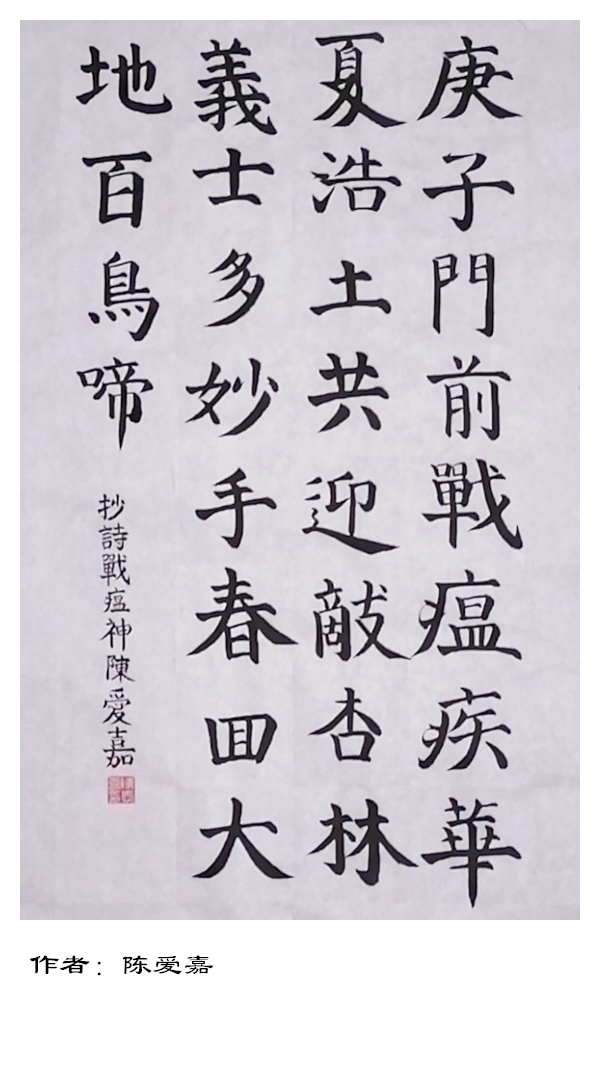 庚子門前戰瘟疾華
夏浩土共迎敵杏林
義士多妙手春回大
地百鳥啼
抄詩戰瘟神陳愛嘉
作者：陈爱嘉